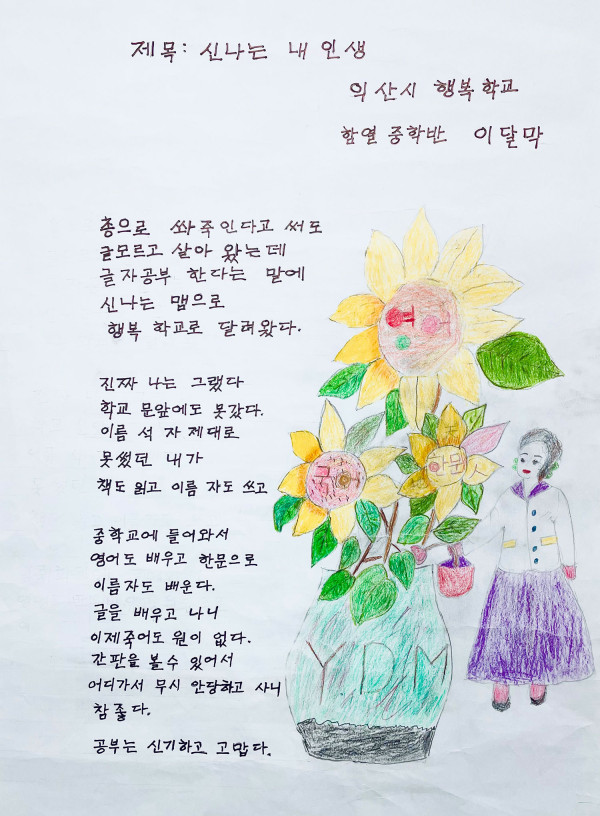 제목: 신나는 내 인생
익산시 행복학교
함열 중학반 이달막
총으로 쏴죽인다고 써도
글모르고 살아 왔는데
글자공부 한다는 말에
신나는 맴으로
행복 학교로 달려왔다.
진짜 나는 그랬다
학교 문앞에도 못갔다.
이름 석 자 제대로
못썼던 내가
책도 읽고 이름 자도 쓰고
중학교에 들어와서
영어도 배우고 한문으로
이름자도 배운다.
글을 배우고 나니
이제죽어도 원이 없다.
간판을 볼수 있어서
어디가서 무시 안당하고 사니
참좋다.
공부는 신기하고 고맙다.
Y.D.M